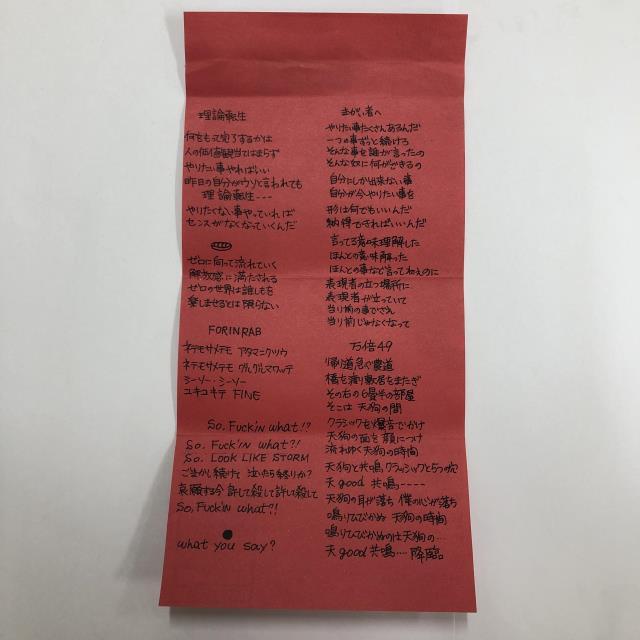 理論転生
何をもって完了するかは
人の価値観当てはまらず
やりたい事やればいい
昨日の自分がウソと言われても
理論転生---
やりたくない事やっていれば
センスがなくなっていくんだ
ゼロに向って流れていく
解放感に満たされる
ゼロの世界は誰しもを
楽しませるとは限らない
FORINRAB
ネテモサメテモ アタマニクソウ
ネテモサメテモ グルグルマワッテ
シーソー・シーソー
ユキユキテ FINE
So. Fuckin what!?
So. Fuck'in what?!
So. LOOK LIKE STORM
ごまかし続けた 泣いたら終りか?
哀願する今 許して殺して許して殺して
So, Fuck'in what?!
what you say?
まがい者へ
やりたい事たくさんあるんだ
一つの事ずっと続けろ
そんな事を誰が言ったの
そんな奴に何ができるの
自分にしか出来ない事
自分が今やりたい事を
形は何でもいいんだ
納得できればいいんだ
言ってる意味理解した
ほんとの意味解った
ほんとの事など言ってねぇのに
表現者の立つ場所に
表現者が立っていて
当り前の事でさえ
当り前じゃなくなって
万倍49
帰り道急ぐ農道
橋を渡り敷居をまたぎ
その右の6畳半の部屋
そこは 天狗の間
クラシックを爆音でかけ
天狗の面を顔につけ
流れゆく天狗の時間
天狗と共鳴クラッシックと5つの穴
天good 共鳴----
天狗の耳が落ち 僕の心が落ち
鳴りひびかぬ 天狗の時間
鳴りひびかぬのは天狗の…
天good共鳴…. 降臨